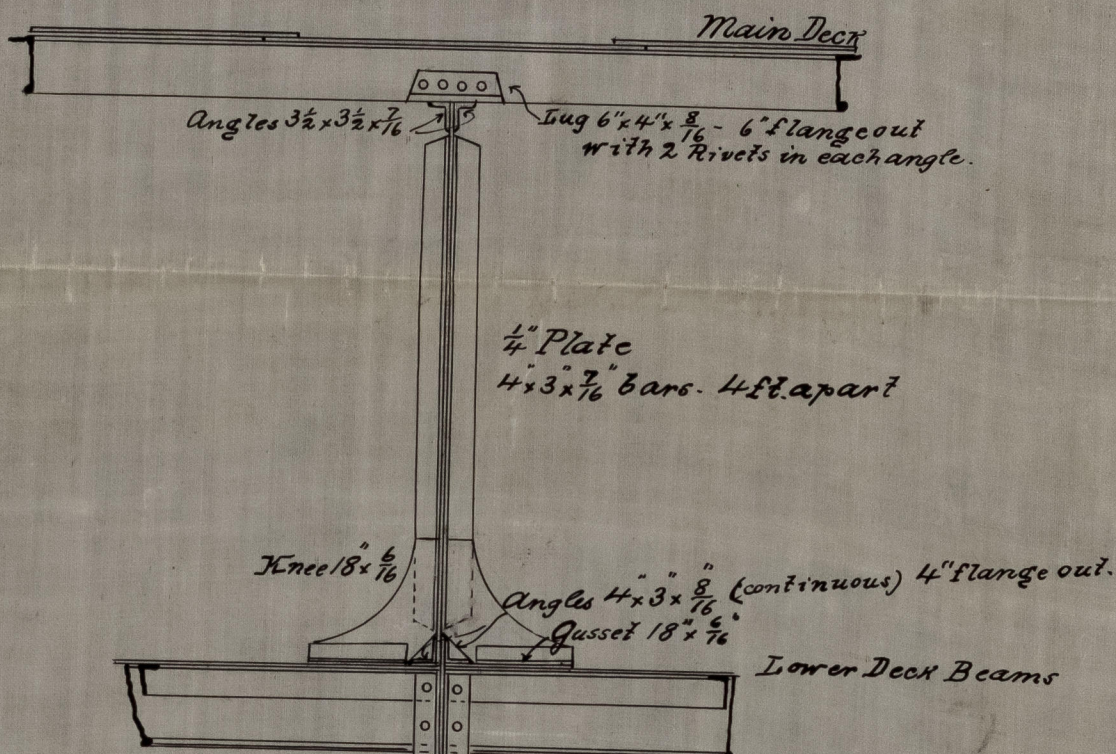 Main Deck
Angles 3½ x 3½ x 7/16
Lug 6" x 4" x 8/16 - 6" flange out
with 2 Rivets in each angle.
¼" Plate
4" x 3" x 7/16" bars. 4ft. apart
Knee 18" x 6/16
Angles 4" x 3" x 8/16" (continuous) 4" flange out.
Gusset 18" x 6/16"
Lower Deck Beams